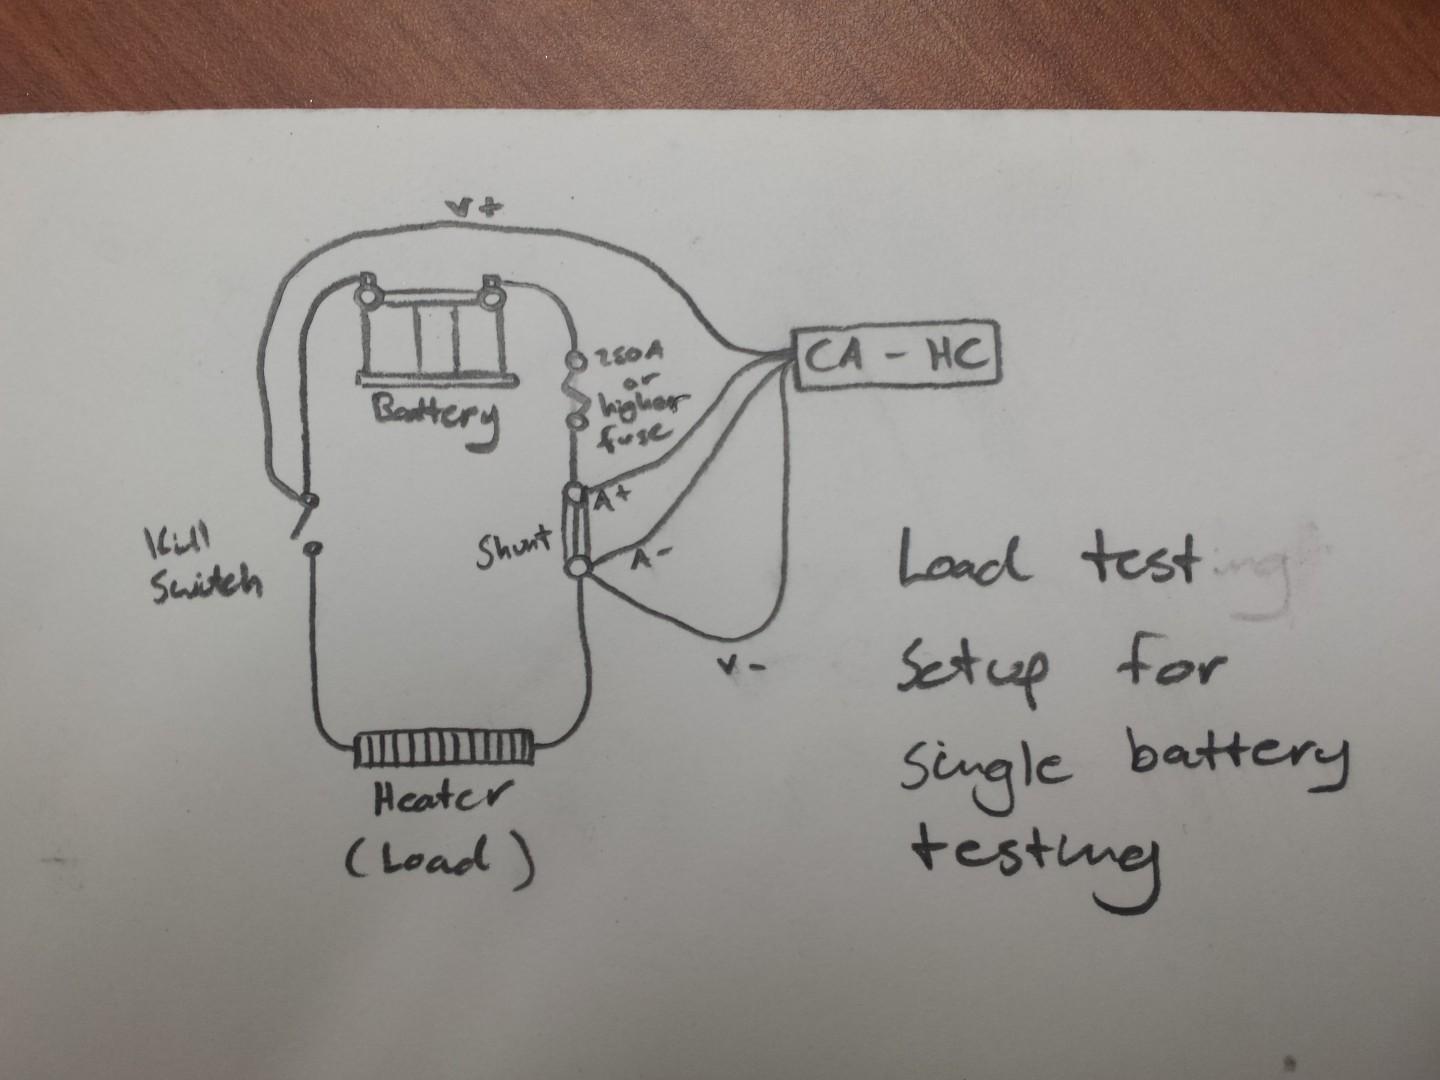 V+
CA - HC
250A
or
higher
fuse
Battery
A+
Shunt
A-
Kill
Switch
V-
Heater
(Load)
Load testing
Setup for
single battery
testing